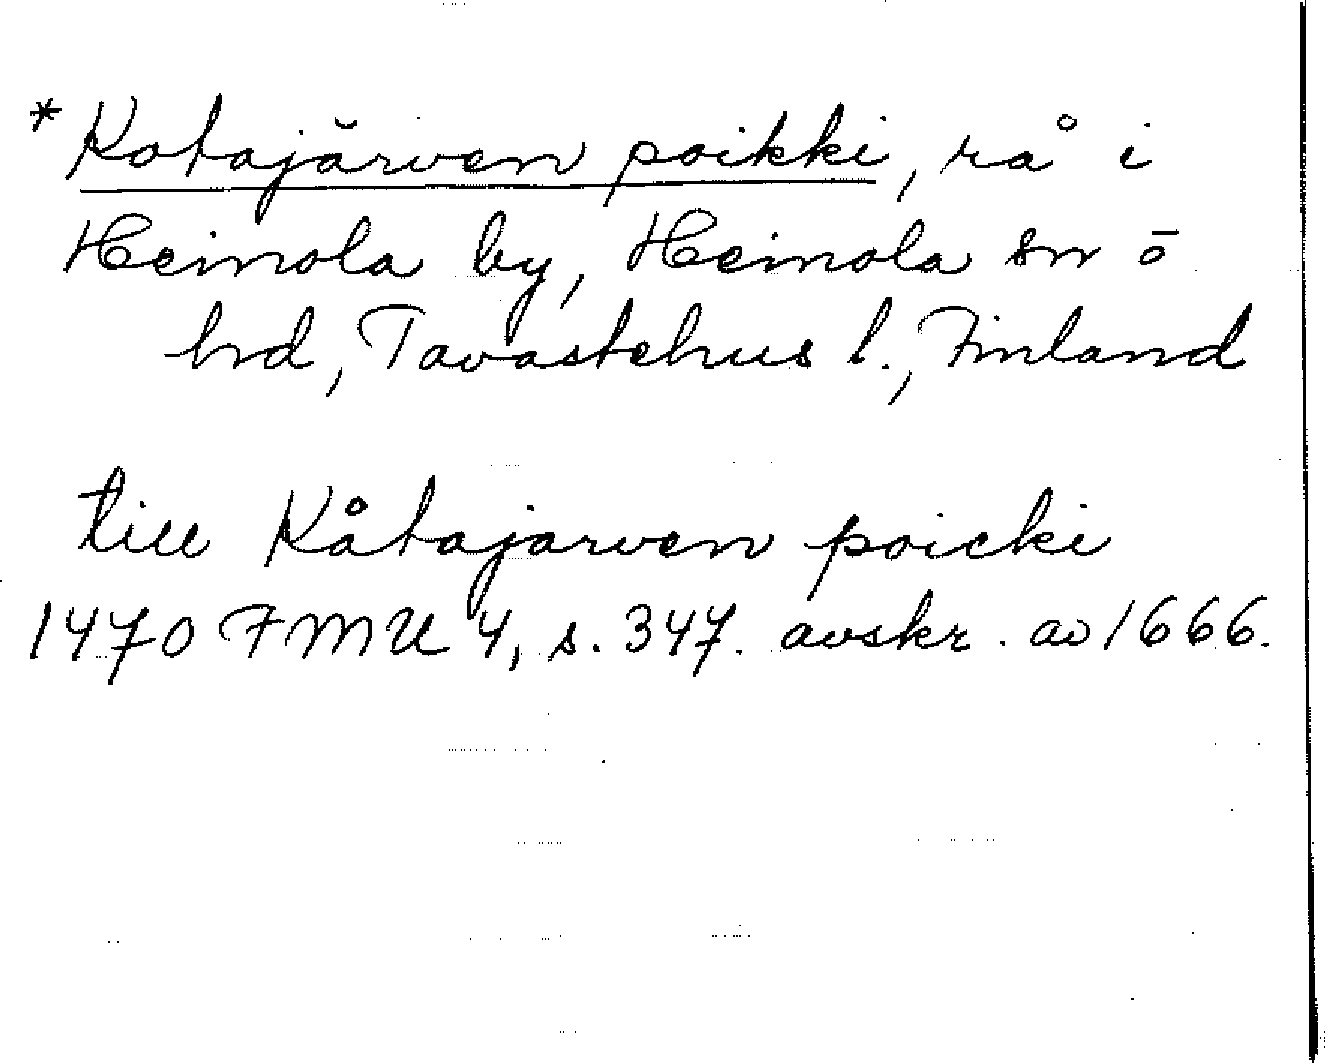 *Kotajärven poikki, rå i
Heinola by, Heinola sn o
hd, Tavastehus l., Finland
till Kåtajarven poicki
1470 FMU 4, s. 347. avskr. av 1666.